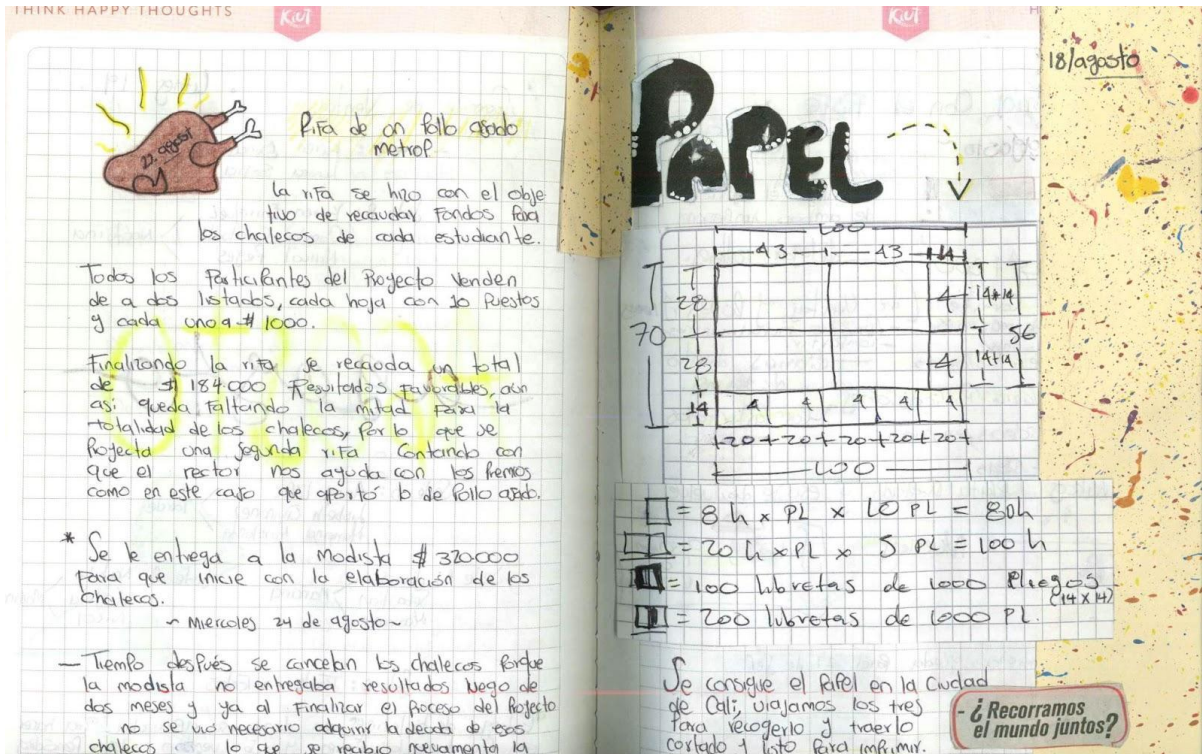 THINK HAPPY THOUGHTS
KiUT
22 agost
Rifa de un Pollo asado
metrop
la rifa se hizo con el obje
tivo de recaudar Fondos para
los chalecos de cada estudiante.
Todos los Participantes del Proyecto Venden
de a dos listados, cada hoja con 10 Puestos
y cada uno a $ 1000.
Finalizando la rifa se recauda un total
de $ 184.000 Resultados Favorables, aun
asi queda faltando la mitad Para la
totalidad de los chalecos, Por lo que se
Proyecta una segunda rifa contando con
que el rector nos ayuda con los Premios
como en este caso que aportó lo de Pollo asado.
* Se le entrega a la Modista $ 320.000
Para que inicie con la elaboración de los
chalecos.
~ Miercoles 24 de agosto ~
— Tiempo desPués se cancelan los chalecos Porque
la modista no entregaba resultados luego de
dos meses y ya al Finalizar el Proceso del Proyecto
no se vio necesario adquirir la de esos
chalecos lo que se recibio nuevamente la
KiUT
H
18/agosto
PAPEL
100
43 43 14
28 4 14+14
70 56
28 4 14+14
14 4 4 4 4 4
20 20 20 20 20
100
= 8 h x PL x 10 PL = 80h
= 20 h x PL x 5 PL = 100 h
= 100 libretas de 1000 Pliegos
(14x14)
= 200 libretas de 1000 PL.
Se consigue el Papel en la Ciudad
de Cali, viajamos los tres
Para recogerlo y traerlo
cortado y listo Para imprimir.
- ¿Recorramos
el mundo juntos?